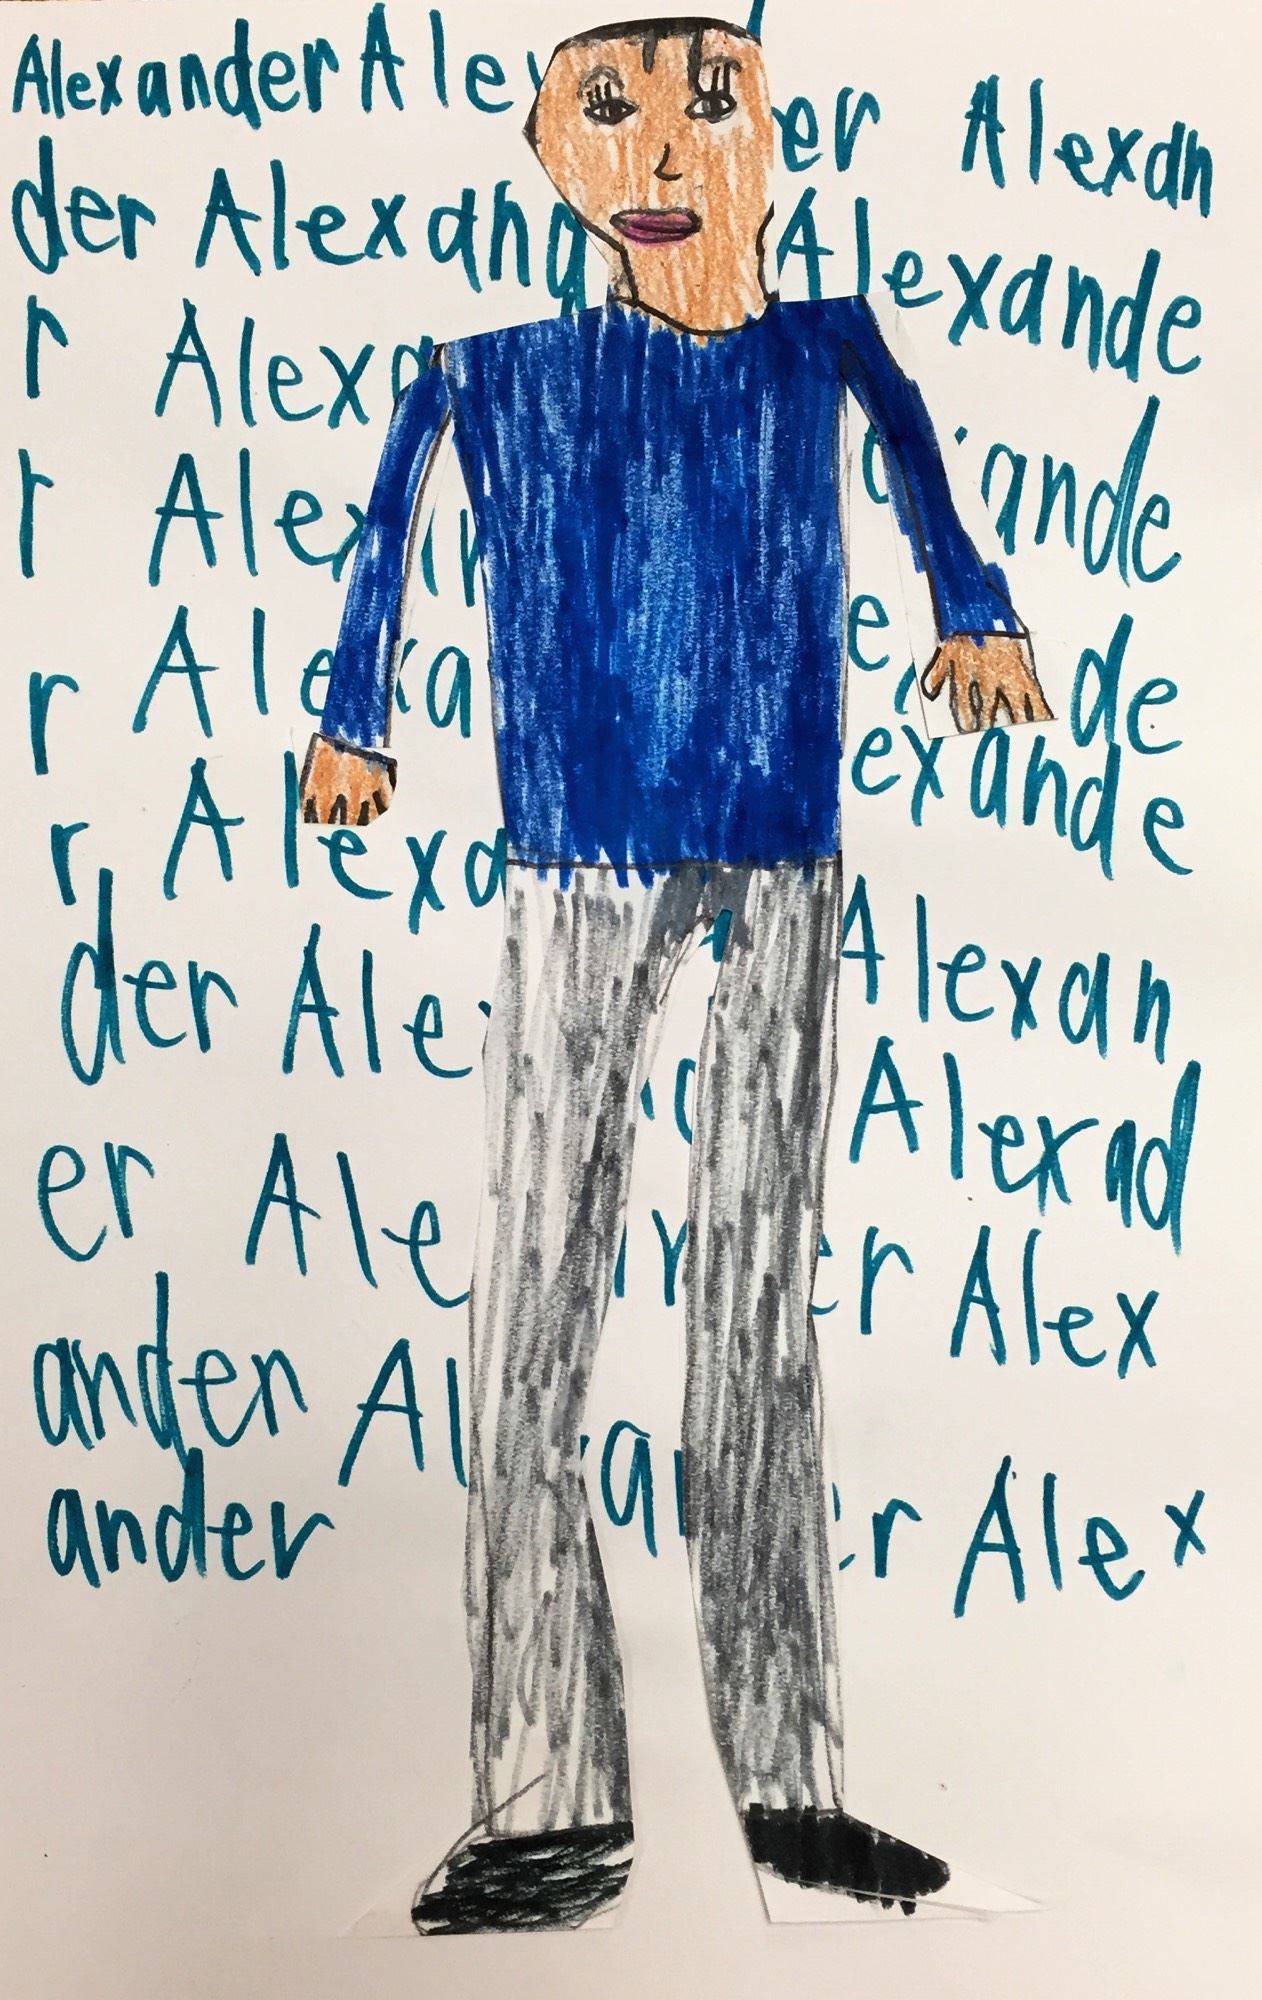 Alexander Ale er Alexan
der Alexand Alexande
r Alexa ande
r Alex e de
r Alexa exande
r Alexa Alexan
der Ale Alexad
er Ale er Alex
ander Al a er Alex
ander